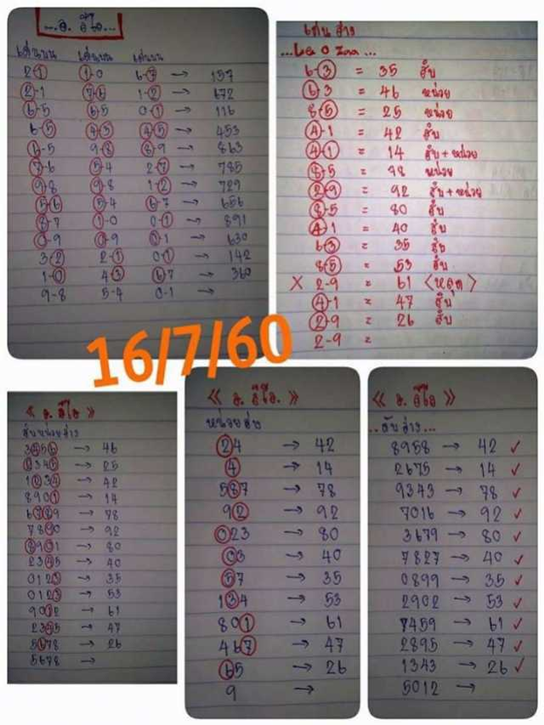 ...อ. อีโอ...
เด่นบน เด่นบน เด่นบน
2-1 1-0 6-7 → 157
2-1 7-6 1-2 → 672
6-5 6-5 0-1 → 116
6-5 4-3 4-5 → 453
6-5 9-8 8-9 → 863
7-6 5-4 2-7 → 785
9-8 9-8 1-2 → 729
5-6 5-4 6-7 → 656
8-7 1-0 0-1 → 891
0-9 0-9 0-1 → 630
3-2 2-1 0-1 → 142
1-0 4-3 6-7 → 360
9-8 5-4 0-1 →
เด่น ล่าง
6-3 = 35 สิบ
6-3 = 46 หน่วย
8-5 = 25 หน่วย
4-1 = 42 สิบ
4-1 = 14 สิบ+หน่วย
8-5 = 78 หน่วย
2-9 = 92 สิบ+หน่วย
8-5 = 80 สิบ
4-1 = 40 สิบ
6-3 = 35 สิบ
8-5 = 53 สิบ
X 2-9 = 61 <หลุด>
4-1 = 47 สิบ
2-9 = 26 สิบ
2-9 =
16/7/60
《 อ. อีโอ 》
สิบหน่วยล่าง
3456 → 46
2345 → 25
1234 → 42
8901 → 14
6789 → 78
7890 → 92
8901 → 80
2345 → 40
0123 → 35
0123 → 53
9012 → 61
2345 → 47
5678 → 26
5678 →
《 อ. อีโอ. 》
หน่วย ล่าง
24 → 42
4 → 14
587 → 78
92 → 92
023 → 80
03 → 40
57 → 35
134 → 53
801 → 61
467 → 47
65 → 26
9 →
《 อ. อีโอ 》
..สิบล่าง...
8958 → 42 ✓
2675 → 14 ✓
9343 → 78 ✓
7016 → 92 ✓
3679 → 80 ✓
7827 → 40 ✓
0899 → 35 ✓
2902 → 53 ✓
7459 → 61 ✓
2895 → 47 ✓
1343 → 26 ✓
5012 →